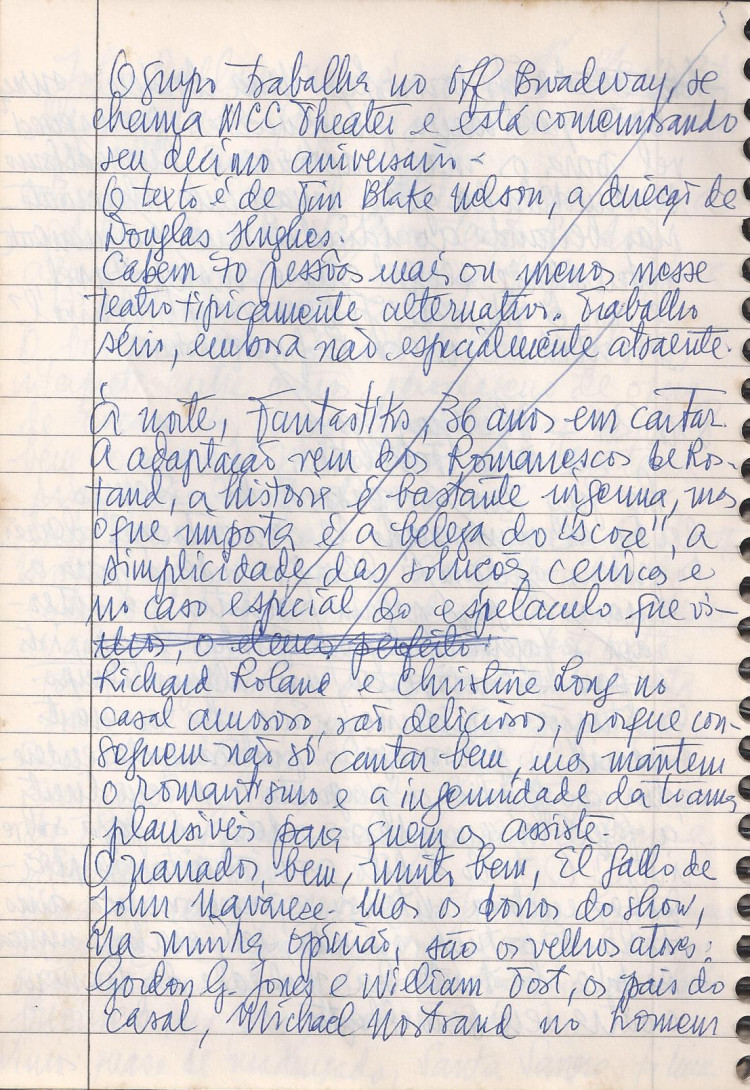 O grupo trabalha no off Broadway, se
chama MCC Theater e está comemorando
seu décimo aniversário.
O texto é de Tim Blake Nelson, a direção de
Douglas Hughes.
Cabem 70 pessoas mais ou menos nesse
teatro tipicamente alternativo. Trabalho
sério, embora não especialmente atraente.
À noite, Fantastiks, 36 anos em cartaz.
A adaptação vem dos Romanescos de Ros-
tand, a história é bastante ingenua, mas
o que importa é a beleza do "score", a
simplicidade das soluções cenicas e
no caso especial do espetaculo que vi-
mos, o elenco perfeito.
Richard Roland e Christine Long no
casal amoroso, são deliciosos, porque con-
seguem não só cantar bem, mas mantem
o romantismo e a ingenuidade da trama
plausiveis para quem os assiste.
O narrador, bem, muito bem, El Gallo de
John Navarese. Mas os donos do show,
na minha opinião, são os velhos atores:
Gordon G. Jones e William Tost, os pais do
casal, Michael Nostrand no homem